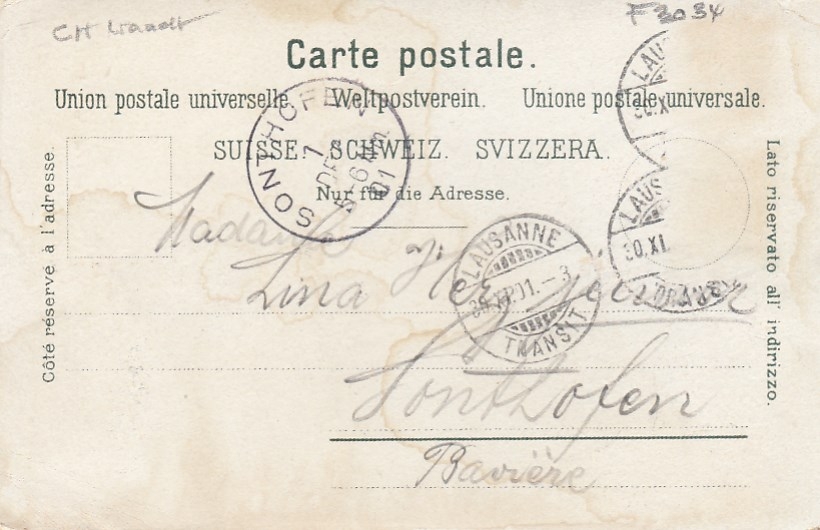 CH Waadt F3034
Carte postale.
Union postale universelle. Weltpostverein. Unione postale universale.
SUISSE. SCHWEIZ. SVIZZERA.
Nur für die Adresse.
Côté réservé à l'adresse.
Lato riservato all' indirizzo.
SONTHOFEN
1
DEZ
01
LAUSANNE
30.XI.01.-3
TRANSIT
LAUS
30.XI
LAUS
30.XI.
Madame
Lina
Sonthofen
Bavière